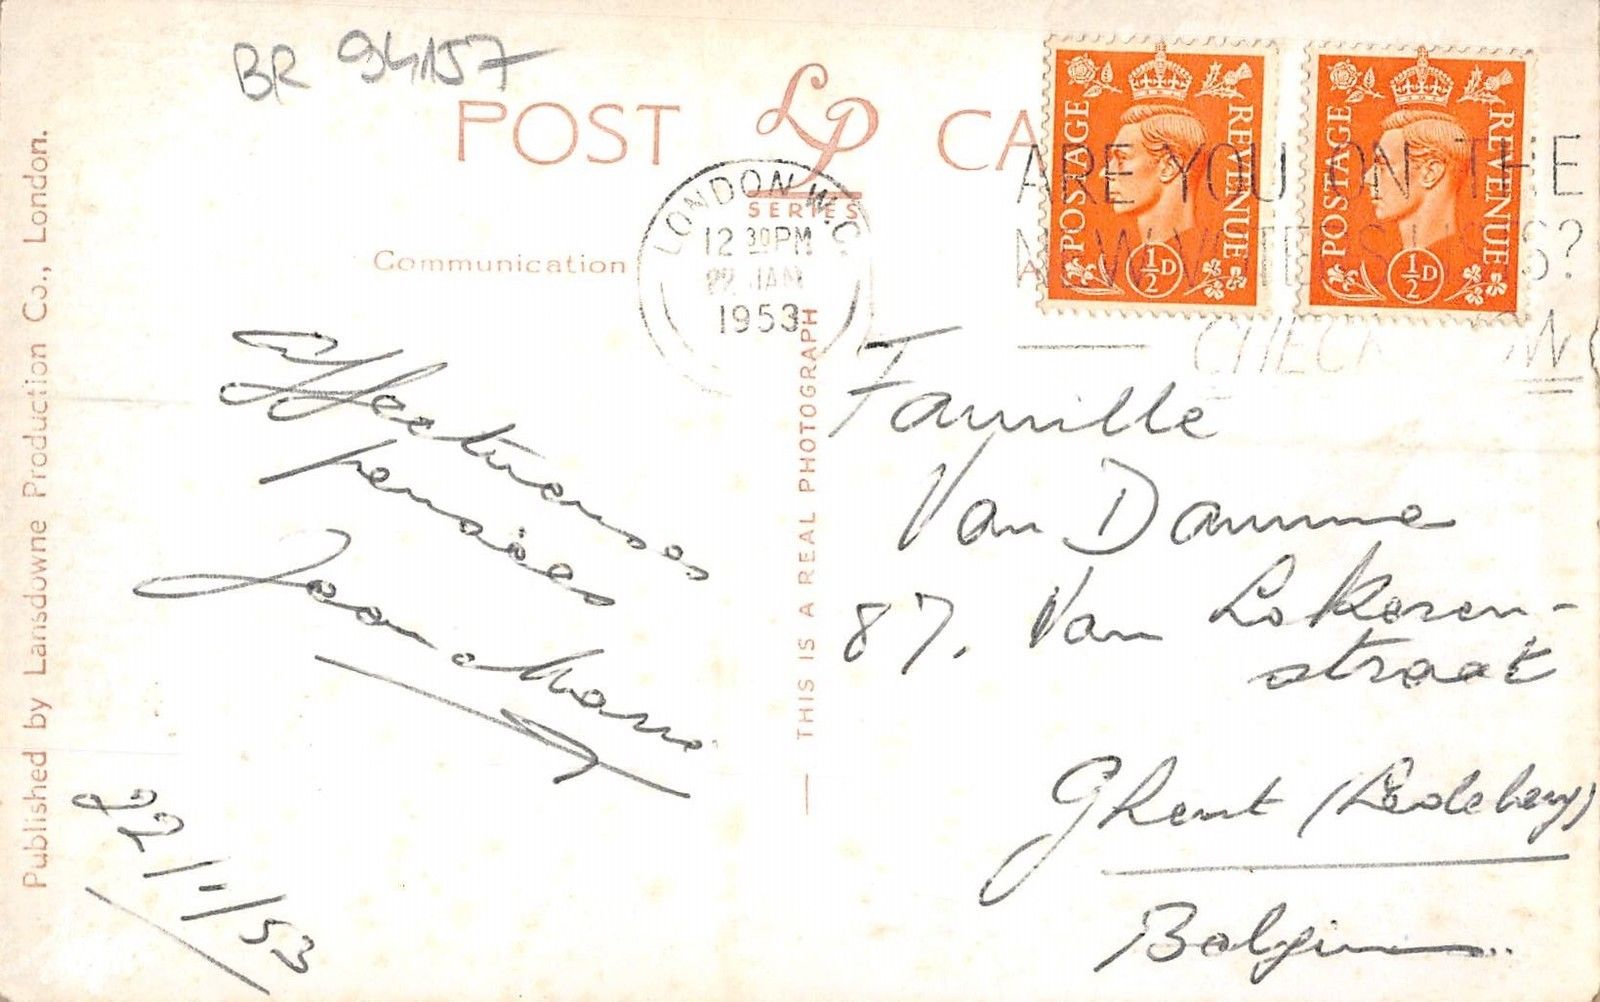 BR 94157
POST CA
LP
SERIES
Communication
LONDON W.C.
12 30 PM
22 JAN
1953
POSTAGE REVENUE
½D
POSTAGE REVENUE
½D
ARE YOU ON THE
NEW VOTERS LISTS?
CHECK NOW
Published by Lansdowne Production Co., London.
THIS IS A REAL PHOTOGRAPH
Affectueuses
pensées
22/1/53
Famille
Van Damme
87. Van Lokeren-
straat
Ghent (Ledeberg)
Belgium